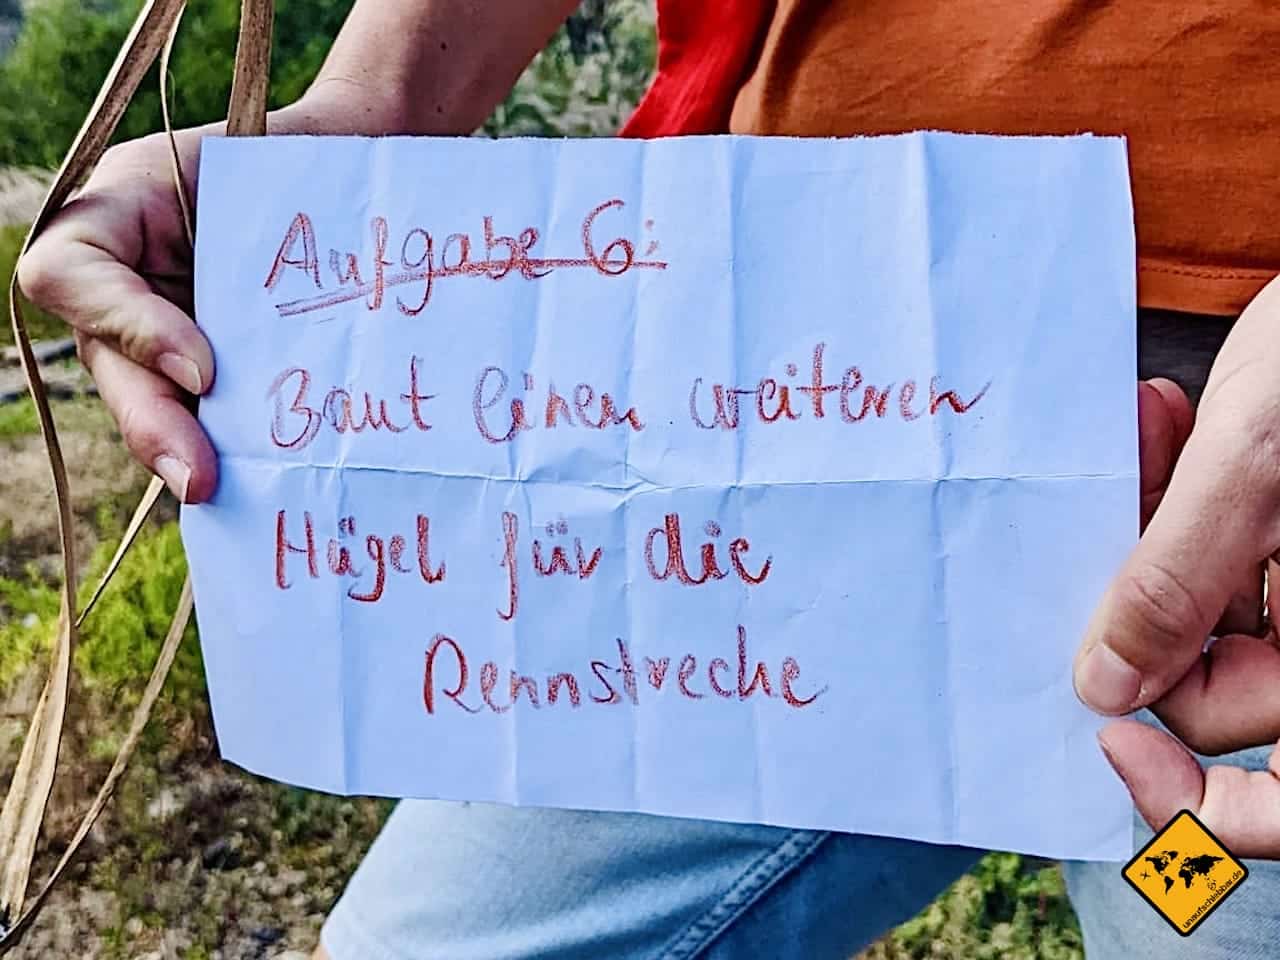 Aufgabe 6:
Baut einen weiteren
Hügel für die
Rennstrecke
unaufschiebbar.de